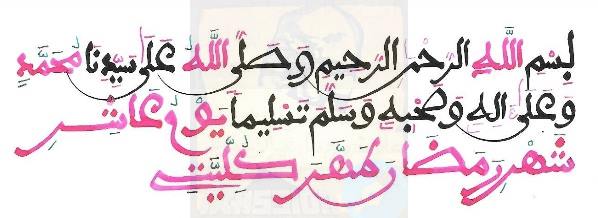 بِسْمِ اللَّهِ الرَّحْمٰنِ الرَّحِيمِ وَصَلَّى اللَّهُ عَلَى سَيِّدِنَا مُحَمَّدٍ
وَعَلَى اٰلِهِ وَصَحْبِهِ وَسَلَّمَ تَسْلِيماً يَوْم عَاشِر
شَهْر رَمَضَان